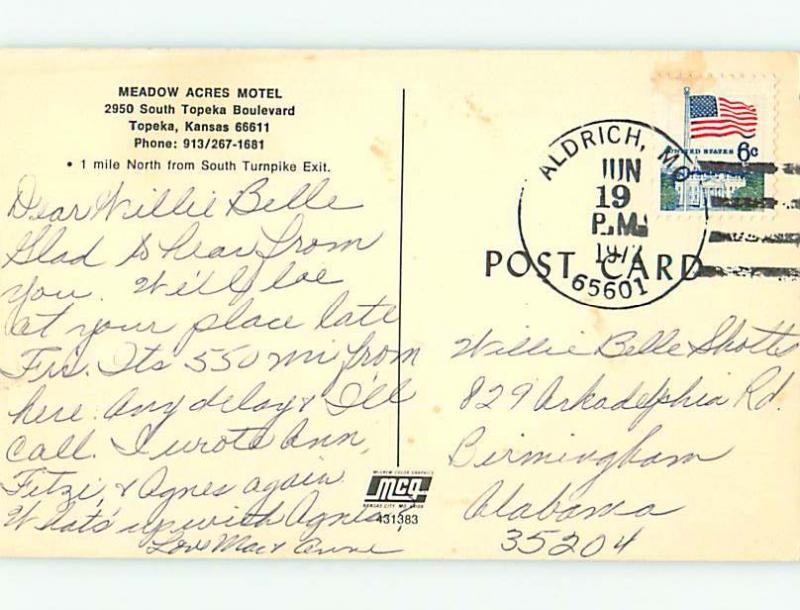 MEADOW ACRES MOTEL
2950 South Topeka Boulevard
Topeka, Kansas 66611
Phone: 913/267-1681
• 1 mile North from South Turnpike Exit.
Dear Willie Belle
Glad to hear from
you. We'll be
at your place late
Fri. Its 550 mi from
here. Any delay & I'll
call. I wrote Ann,
Fitzi, & Agnes again
Whats up with Agnes,
Love Mac & Anne
POST CARD
McGREW COLOR GRAPHICS
MCG
KANSAS CITY, MO.
431383
UNITED STATES
6c
ALDRICH, MO
JUN
19
P.M.
65601
Willie Belle Shotts
829 Arkadelphia Rd.
Birmingham
Alabama
35204